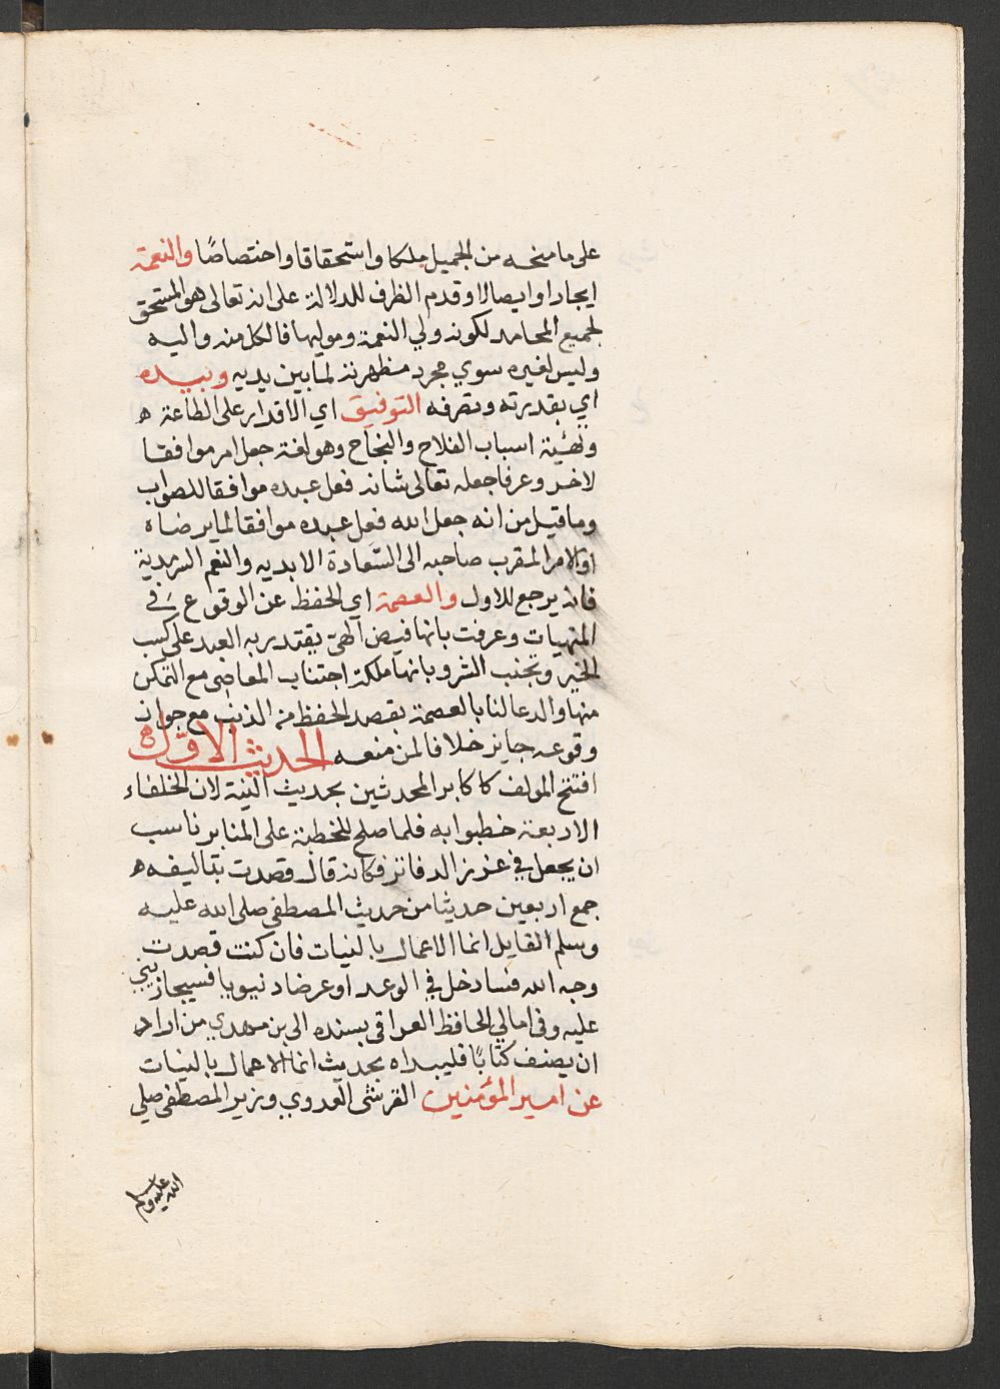 على ما منحه من الجميل ملكا واستحقاقا واختصاصًا والنعمة
ايجادا وايصالا وقدم الظرف للدلالة على انه تعالى هو المستحق
لجميع المحامد لكونه ولي النعمة وموليها فالكل منه واليه
وليس لغيره سوي مجرد مظهرية لما بين يديه وبيده
اي بقدرته وتصرفه التوفيق اي الاقدار على الطاعة ه
وتهئية اسباب الفلاح والنجاح وهو لغة جعل امر موافقا
لاخر وعرفا جعله تعالى شانه فعل عبده موافقا للصواب
وما قيل من انه جعل الله فعل عبده موافقا لما يرضاه
او الامر المقرب صاحبه الى السعادة الابديه والنعم السرمدية
فانه يرجع للاول والعصمة اي الحفظ عن الوقوع في
المنهيات وعرفت بانها فيض الهيّ يقتدر به العبد على كسب
الخير وتجنب الشر وبانها ملكة اجتناب المعاصي مع التمكن
منها والدعا لنا بالعصمة بقصد الحفظ من الذنب مع جواز
وقوعه جايز خلافا لمن منعه الحديث الاوّل ه
افتتح المولف كاكابر المحدثين بحديث النية لان الخلفاء
الاربعة خطبوا به فلما صلح للخطبة على المنابر ناسب
ان يجعل في غرز الدفاتر فكانه قال قصدت بتاليفه ه
جمع اربعين حديثا من حديث المصطفى صلى الله عليه
وسلم القايل انما الاعمال بالنيات فان كنت قصدت
وجه الله فسادخل في الوعد او عرضا دنيويا فسيجازيني
عليه وفى امالي الحافظ العراقي بسنده الى بن مهدي من اراد
ان يصنف كتابًا فليبداه بحديث انما الاعمال بالنيات
عن امير المؤمنين القرشى العدوي وزير المصطفى صلى
الله عليه وسلم